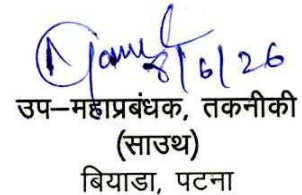 8/6/26
उप–महाप्रबंधक, तकनीकी
(साउथ)
बियाडा, पटना